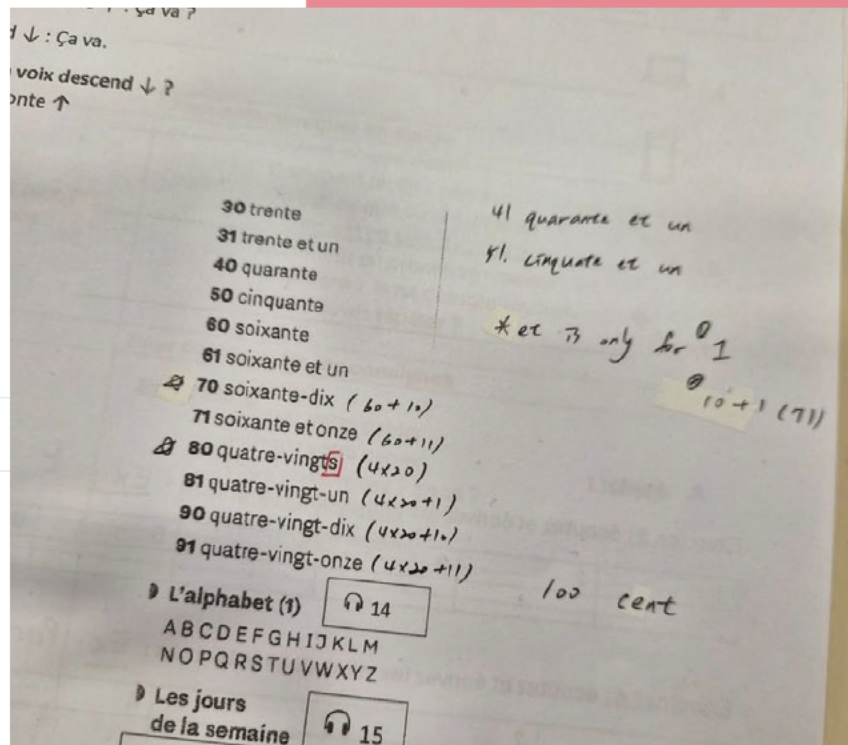 Ça va ?
↓ : Ça va.
voix descend ↓ ?
onte ↑
30 trente
31 trente et un
40 quarante
50 cinquante
60 soixante
61 soixante et un
70 soixante-dix (60+10)
71 soixante et onze (60+11)
80 quatre-vingts (4x20)
81 quatre-vingt-un (4x20+1)
90 quatre-vingt-dix (4x20+10)
91 quatre-vingt-onze (4x20+11)
41 quarante et un
51. cinquate et un
* et is only for 1
10+1 (71)
100 cent
L'alphabet (1) 14
A B C D E F G H I J K L M
N O P Q R S T U V W X Y Z
Les jours
de la semaine 15